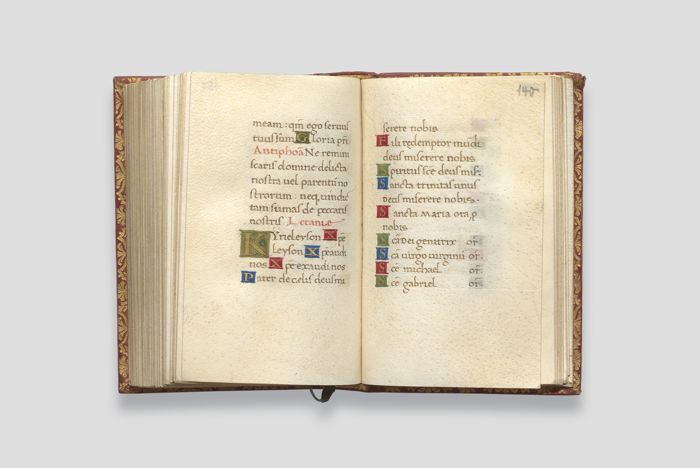 meam: qm̄ ego seruus
tuus sum Gloria pr̄i
Antiphoā Ne remini
scaris domine delicta
nostra uel parentū no
strorum: neq uindic
tam sumas de peccatis
nostris. Letaniae
Kyrieleyson Xpe
leyson Xpe audi
nos Xpe exaudi nos
Pater de celis deus mi
140
serere nobis
Fili redemptor mūdi
deus miserere nobis
Spiritus sc̄e deus mis̄.
Sancta trinitas unus
Deus miserere nobis.
Sancta Maria ora p̱
nobis
Sc̄a Dei genitrix or̄.
Sc̄a uirgo uirginū or̄.
Sc̄e michael or̄.
Sc̄e gabriel. or̄.